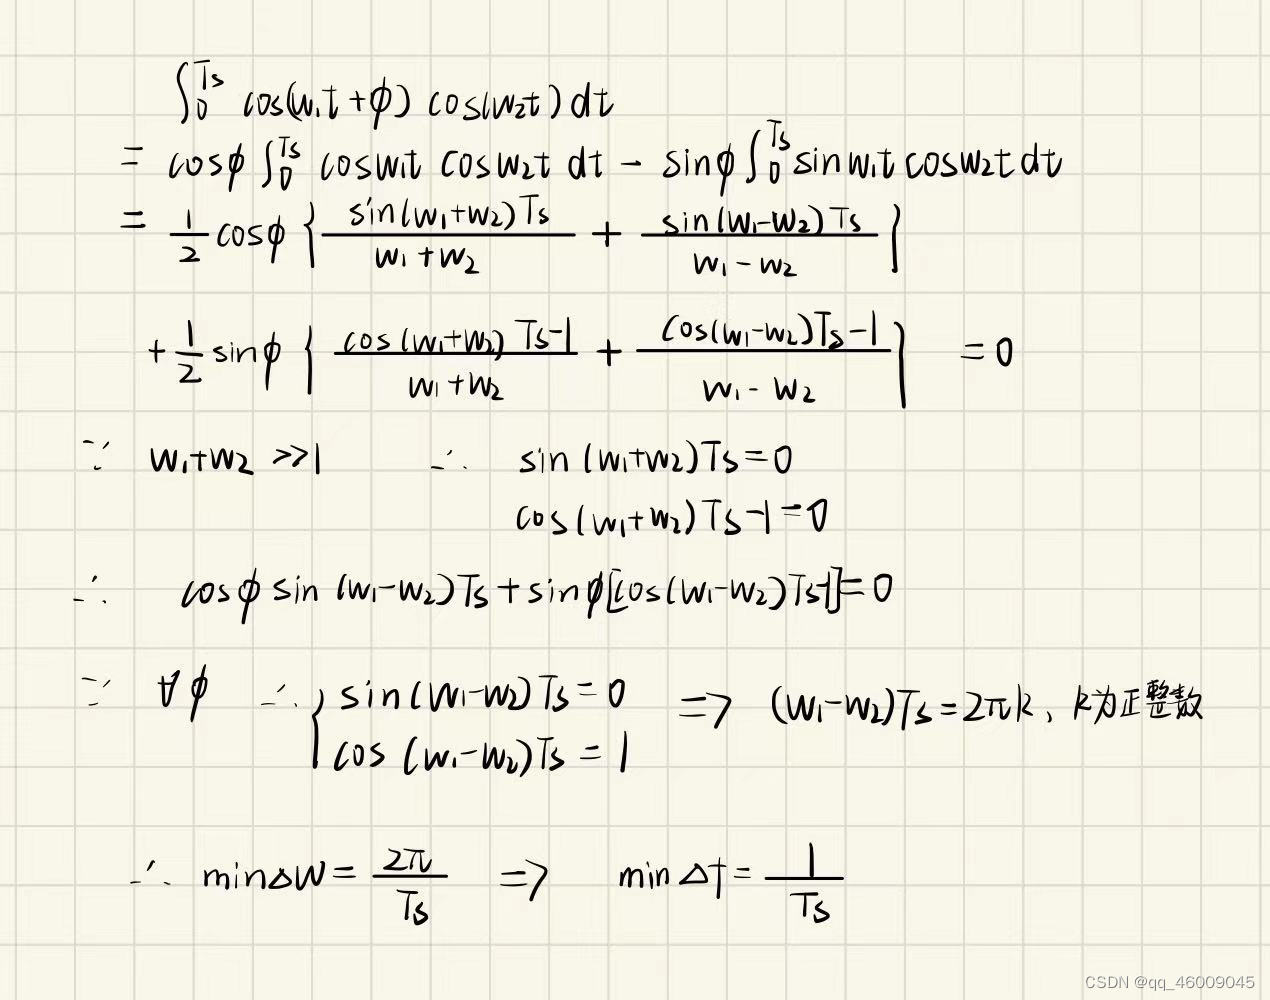 ∫₀^Ts cos(w₁t+φ) cos(w₂t) dt
= cosφ ∫₀^Ts cosw₁t cosw₂t dt - sinφ ∫₀^Ts sinw₁t cosw₂t dt
= 1/2 cosφ { sin(w₁+w₂)Ts / w₁+w₂ + sin(w₁-w₂)Ts / w₁-w₂ }
+ 1/2 sinφ { cos(w₁+w₂)Ts-1 / w₁+w₂ + cos(w₁-w₂)Ts-1 / w₁-w₂ } = 0
∵ w₁+w₂ >>1 ∴ sin(w₁+w₂)Ts=0
cos(w₁+w₂)Ts-1=0
∴ cosφ sin(w₁-w₂)Ts + sinφ[cos(w₁-w₂)Ts-1]=0
∵ ∀φ ∴ { sin(w₁-w₂)Ts=0 => (w₁-w₂)Ts=2πk、k为正整数
cos(w₁-w₂)Ts=1
∴ minΔw= 2π/Ts => minΔf= 1/Ts
CSDN @qq_46009045